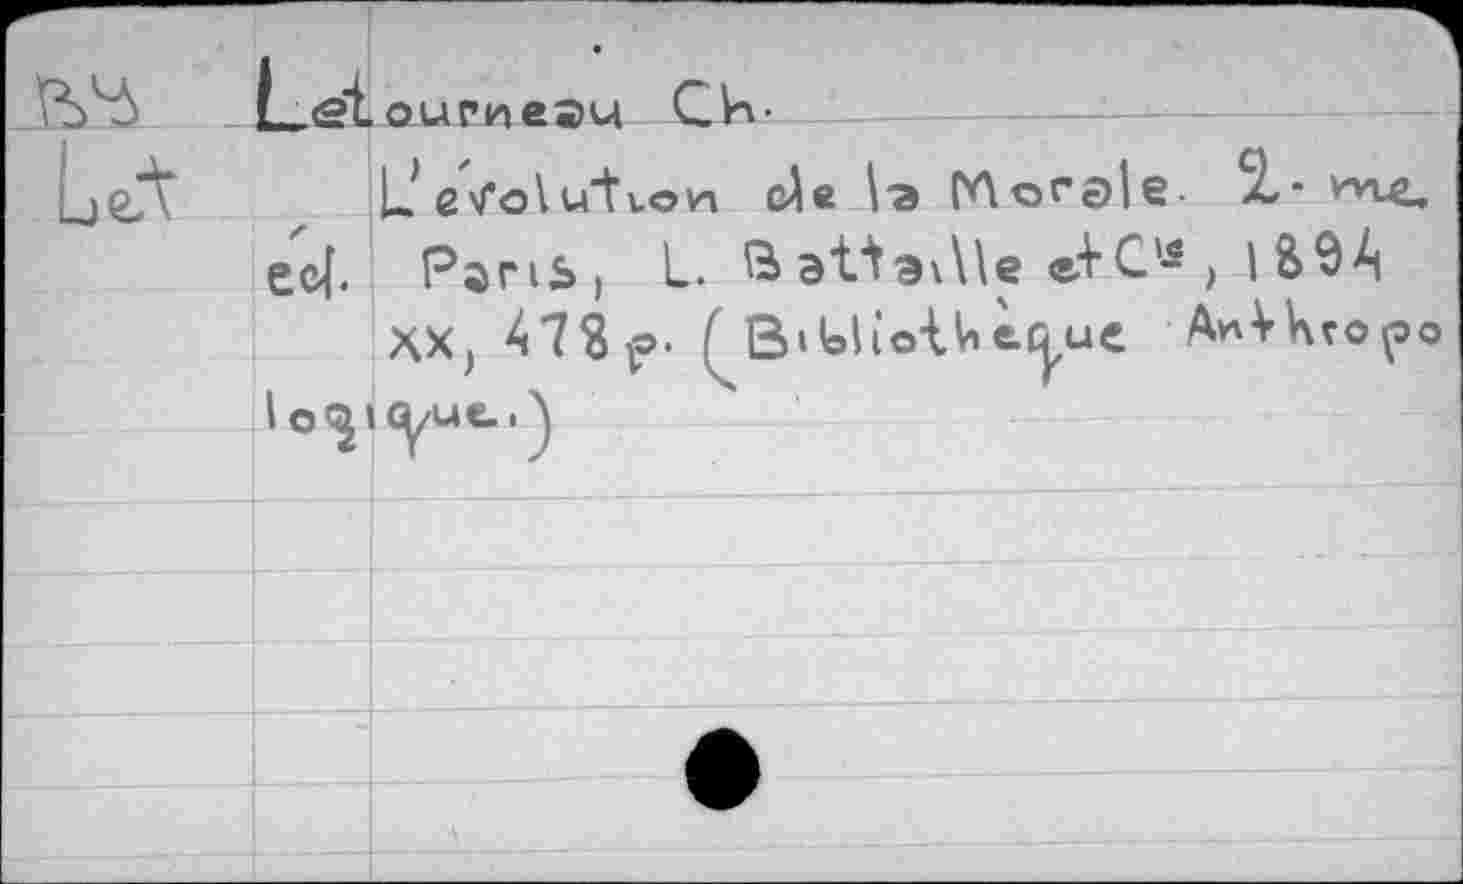 BY Letourneau Ch.
Let L'évolution de la Morale. 2-me.
éd. Paris, L. Battaille et Cie, 1894
XX, 478 p. (Bibliothèque Anthropo
logique.)